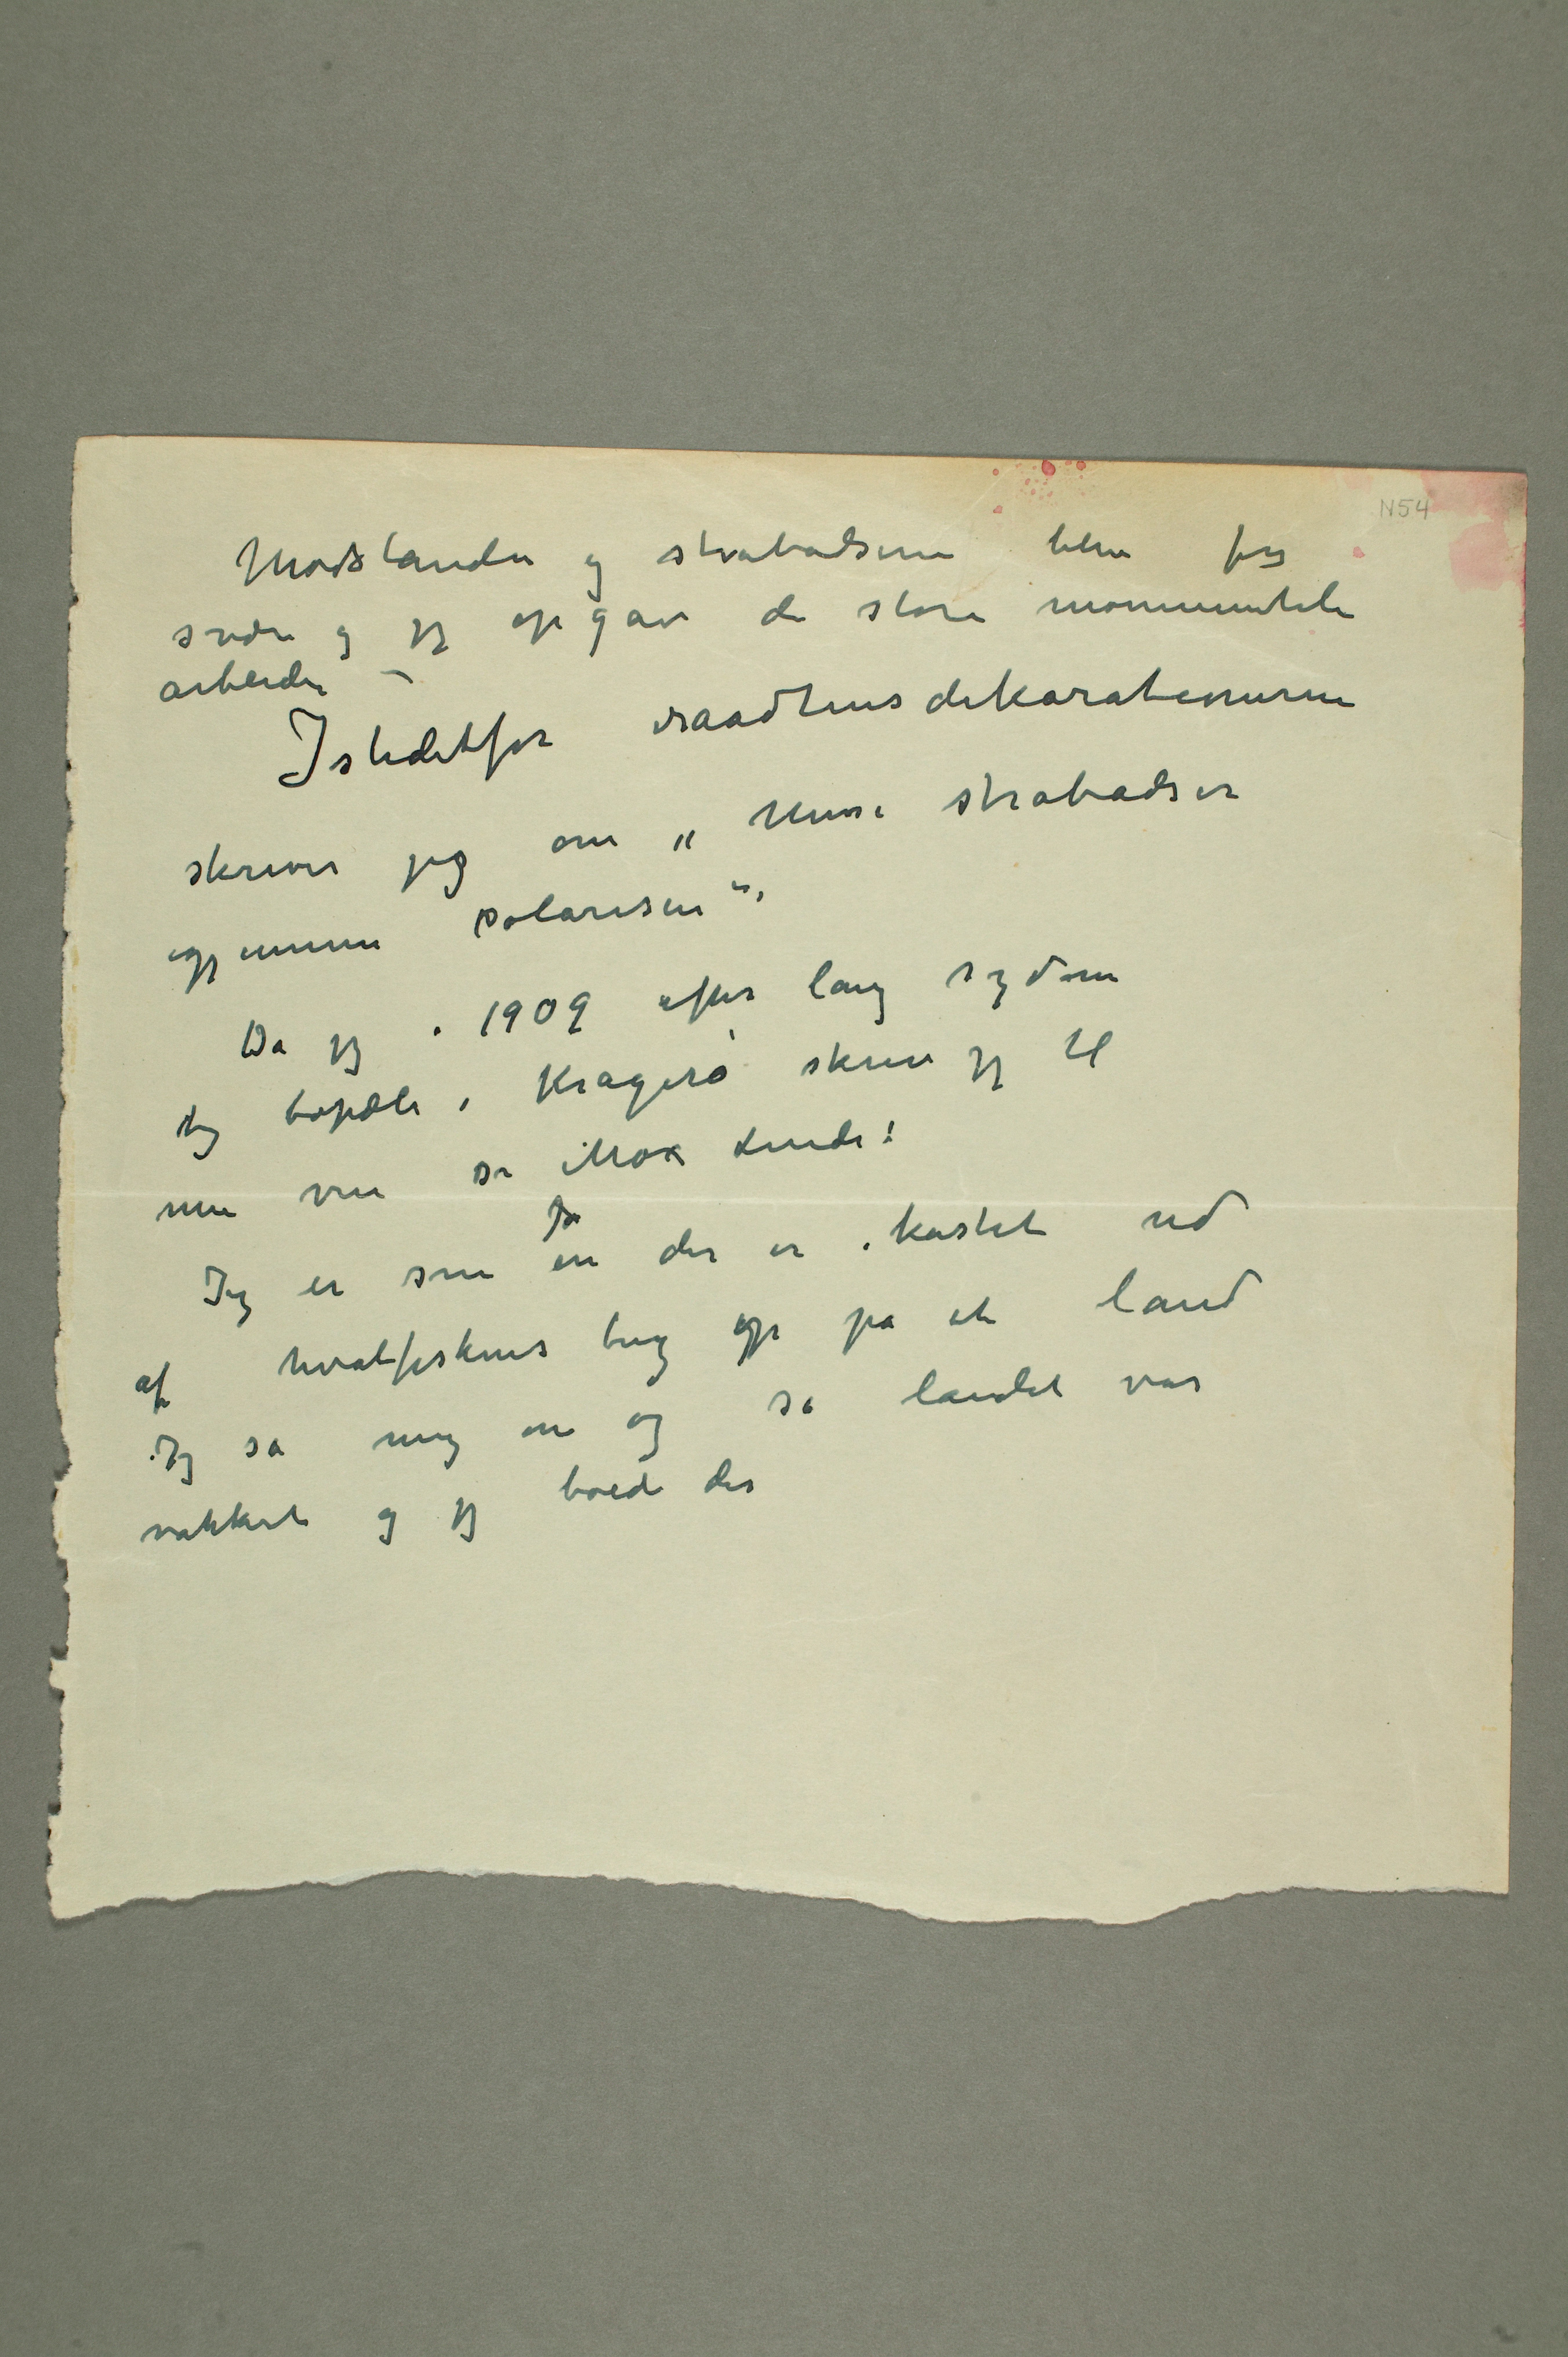 N54
Modstanden og strabadserne blev for
svære og jeg opgav de store monumentale
arbeider –
Istedetfor raadhusdekorationerne
skriver jeg om „Mine strabadser
igjennem polarisen“.
Da jeg i 1909 efter lang sygdom
tog bopæl i Kragerø skrev jeg til
min ven Dr Max Linde!
Jeg er som en der er kastet ud
af hvalfiskens bug op på et land
Jeg så meg om og så landet var
vakkert og jeg boede der